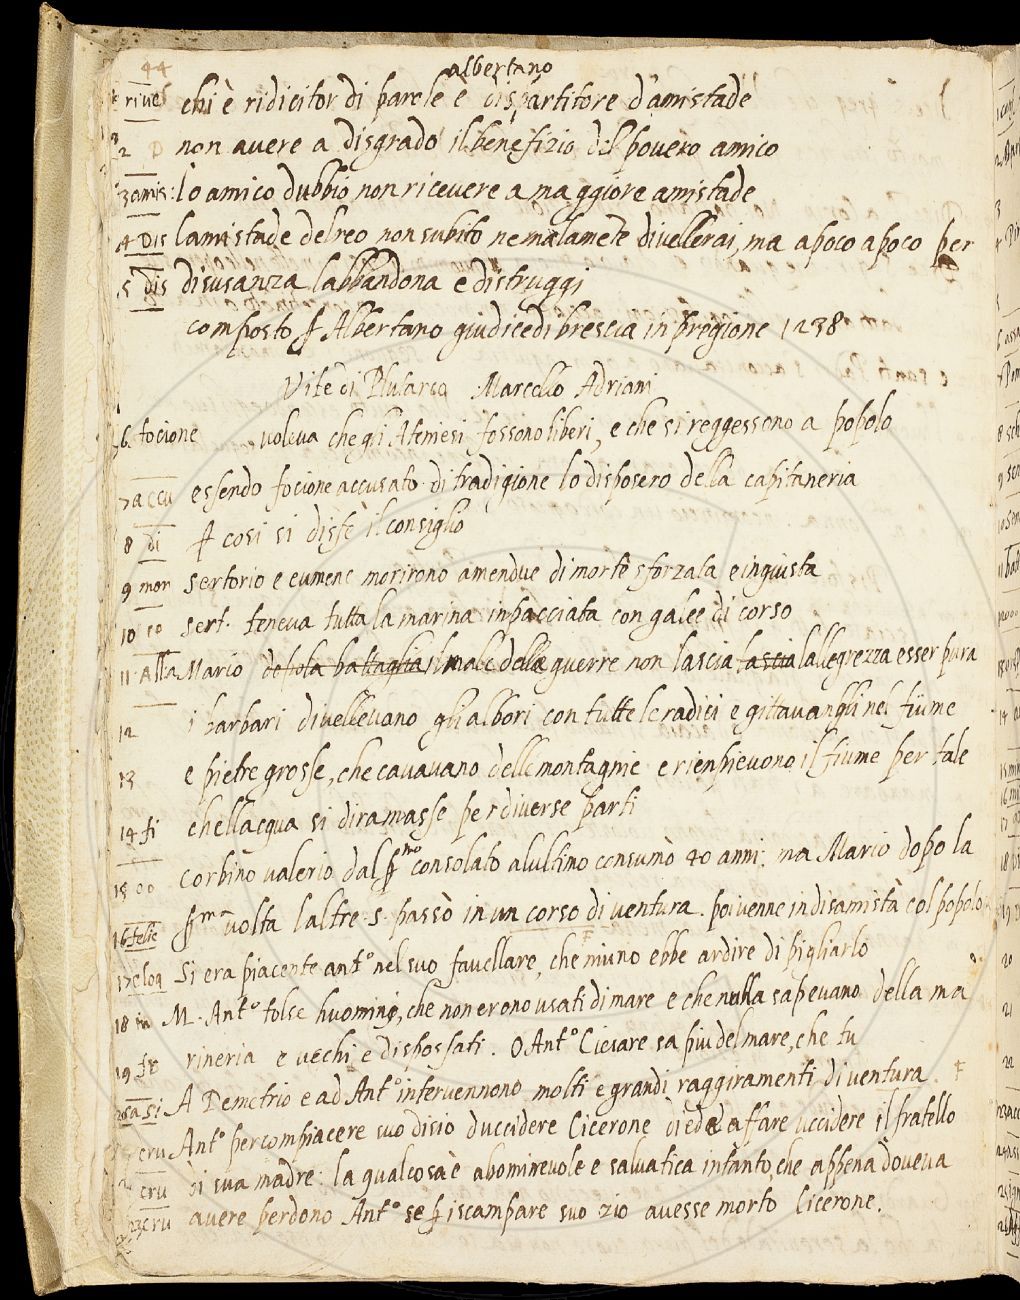 44
albertano
rive chi è ridicitor di parole è dispartitore d'amistade
2 non avere a disgrado il benefizio del povero amico
3 amis: lo amico dubbio non ricevere a maggiore amistade
4 Dis lamistade del reo non subito ne malamete divellerai, ma a poco a poco per
5 dis disusanza labbandona e distruggi
composto Albertano giudice di brescia in prigione 1238
Vite di Plutarco Marcello Adriani
6. focione voleva che gli Ateniesi fossono liberi, e che si reggessono a popolo
7 accu essendo focione accusato di tradigione lo disposero della capitaneria
8 di cosi si disfe il consiglio
9 mor sertorio e eumene morirono amendue di morte sforzata e ingiusta
10 co sert. teneva tutta la marina inpacciata con galee di corso
11 Alla Mario di sola battaglia il male delle guerre non lascia lascia lallegrezza esser pura
12 i barbari divellevano gli albori con tutte le radici e gittavangli nel fiume
13 e pietre grosse, che cavavano delle montagnie e rienpievono il fiume per tale
14 fi chellacqua si diramasse per diverse parti
15 co corbino valerio dal pmo consolato alultimo consumò 40 anni: ma Mario dopo la
16 felic pma volta laltre .5. passò in un corso di ventura. poi venne in disamistà col popolo
17 eloq Si era piacente anto nel suo favellare, che niuno ebbe ardire di pigliarlo
18 in M. Anto tolse huomini, che non erono usati di mare e che nulla sapevano della ma
19 fe rineria e vechi e dispossati. O Anto Ciesare sa piu del mare, che tu
sa si A Demetrio e ad Anto intervennono molti e grandi raggiramenti di ventura
cru Anto per compiacere suo disio duccidere Cicerone diede affare uccidere il fratello
cru di sua madre: la qualcosa è abominevole e salvatica intanto, che appena doveva
23 cru avere perdono Anto se iscampare suo zio avesse morto Cicerone.